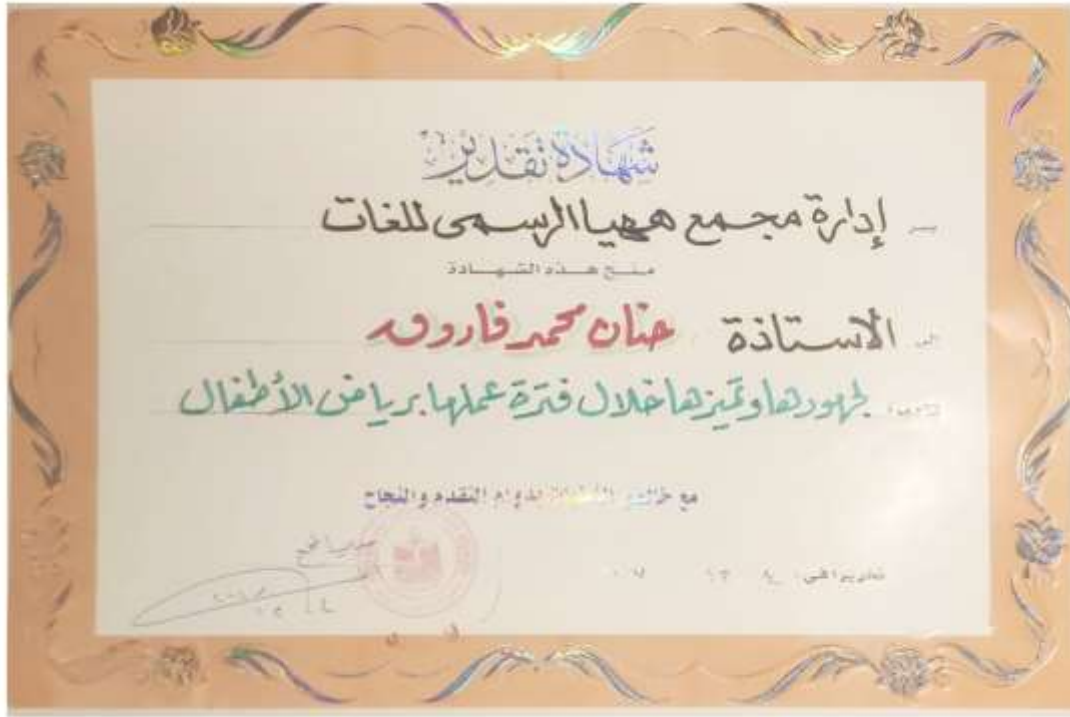 شهادة تقدير
يسر إدارة مجمع ههيا الرسمى للغات
منح هذه الشهادة
إلى الأستاذة حنان محمد فاروق
لجهودها وتميزها خلال فترة عملها برياض الأطفال
مع خالص التمنيات بدوام التقدم والنجاح
تحريراً فى: